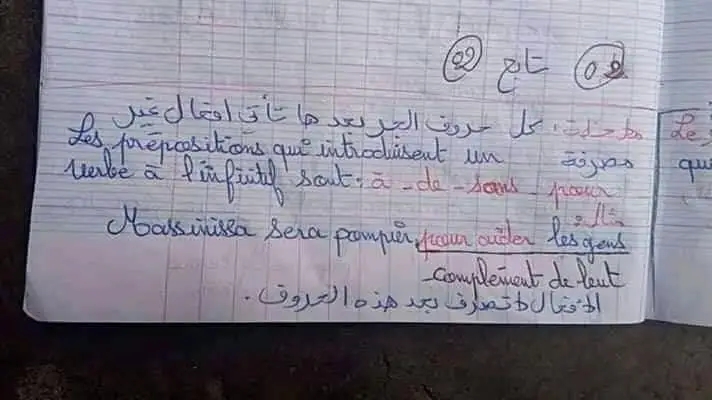 02 تابع 02
ملاحظة: كل حروف الجر بعدها تأتي افعال غير
مصرفة Les prépositions qui introduisent un
verbe à l'infinitif sont: à - de - sans - pour
مثال:
Massinissa sera pompier, pour aider les gens
complément de but
الافعال لا تصرف بعد هذه الحروف.
Le
qu